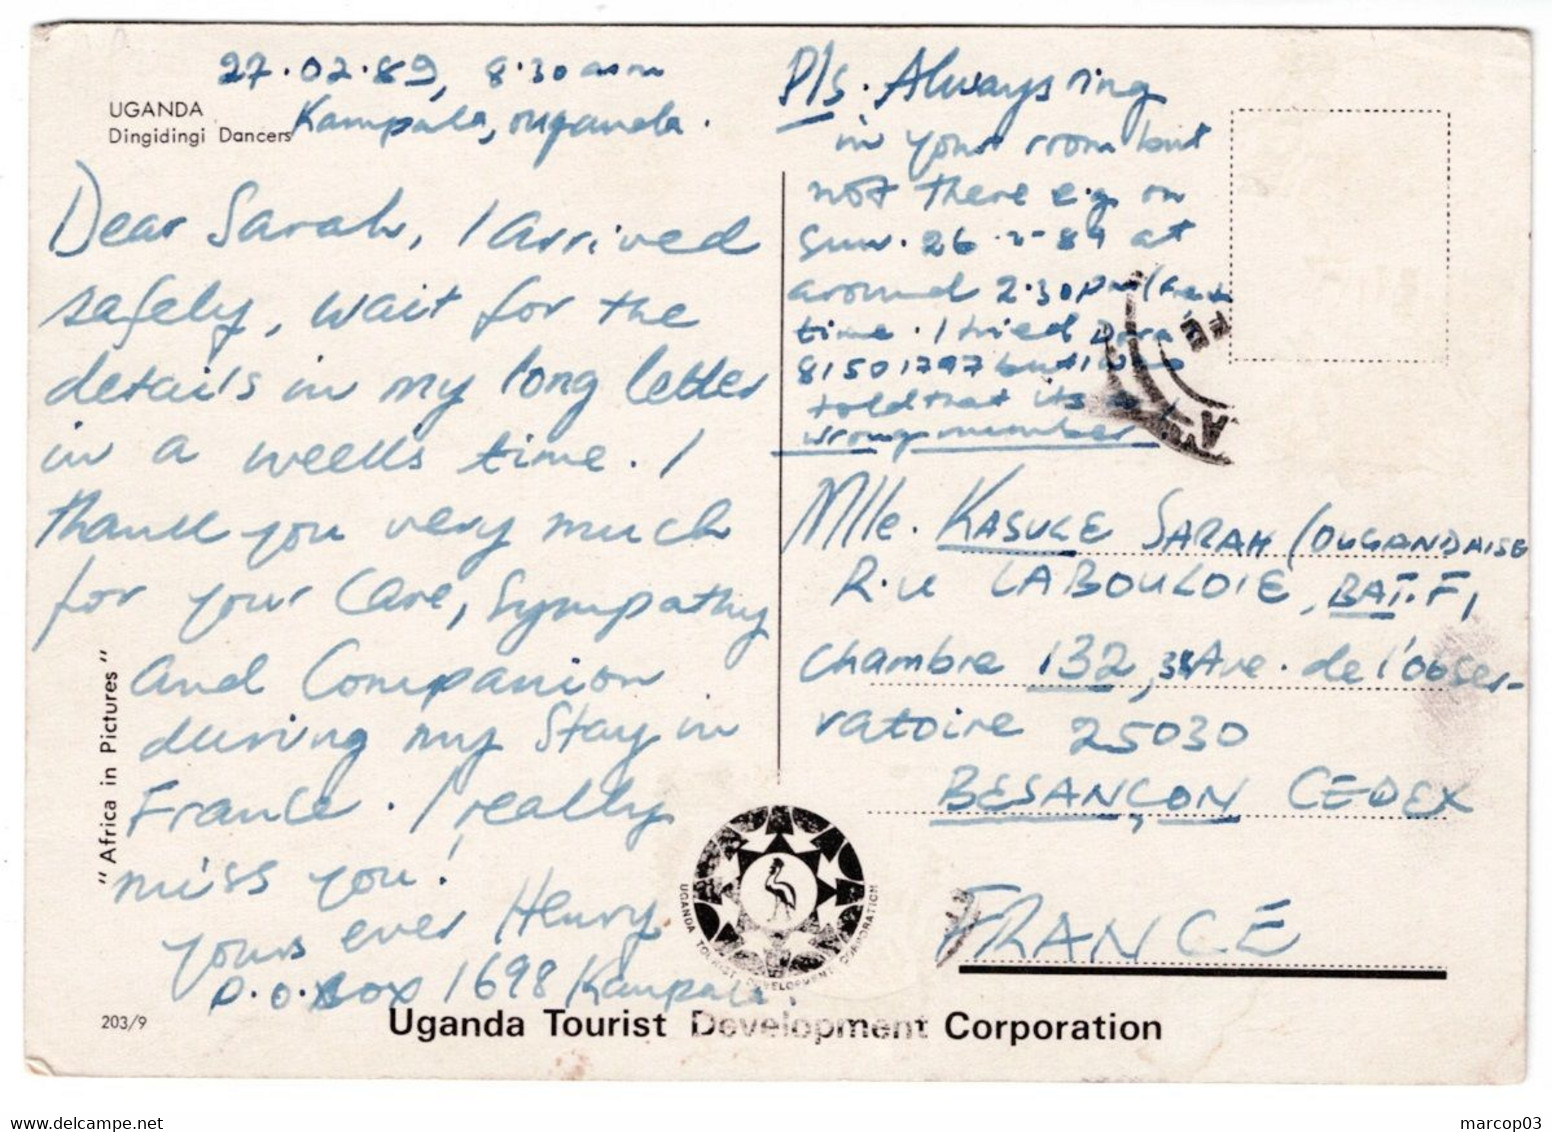 27.02.89, 8.30am
Kampala, ouganda.
UGANDA
Dingidingi Dancers
Dear Sarah, I arrived
safely, wait for the
details in my long letter
in a weeks time. I
thank you very much
for your Care, Sympathy
and Companion
during my Stay in
France. I really
miss you!
yours ever Henry
P.O. Box 1698 Kampala
"Africa in Pictures"
203/9
P/s. Always ring
in your room but
not there e.g. on
Sun. 26-2-89 at
around 2.30pm
time. I tried Dora
81501797 but I was
told that its a
wrong number
Mlle. KASULE SARAH (OUGANDAISE
R.U LABOULOIE, BAT.F,
chambre 132, 38 Ave. de l'obser-
vatoire 25030
BESANÇON CEDEX
FRANCE
UGANDA TOURIST DEVELOPMENT CORPORATION
Uganda Tourist Development Corporation
marcop03